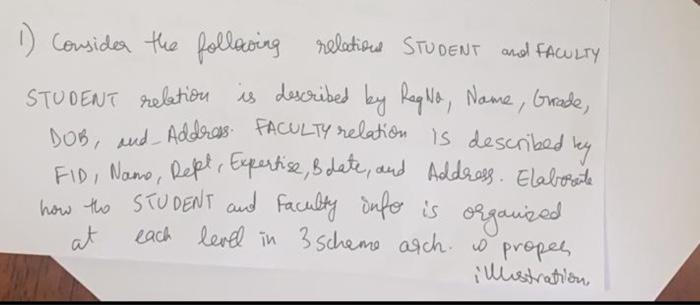 1) Consider the following relations STUDENT and FACULTY
STUDENT relation is described by RegNo, Name, Grade,
DOB, and Address. FACULTY relation is described by
FID, Name, Dept, Expertise, Bdate, and Address. Elaborate
how the STUDENT and Faculty info is organized
at each level in 3 schema arch. w proper
illustration.